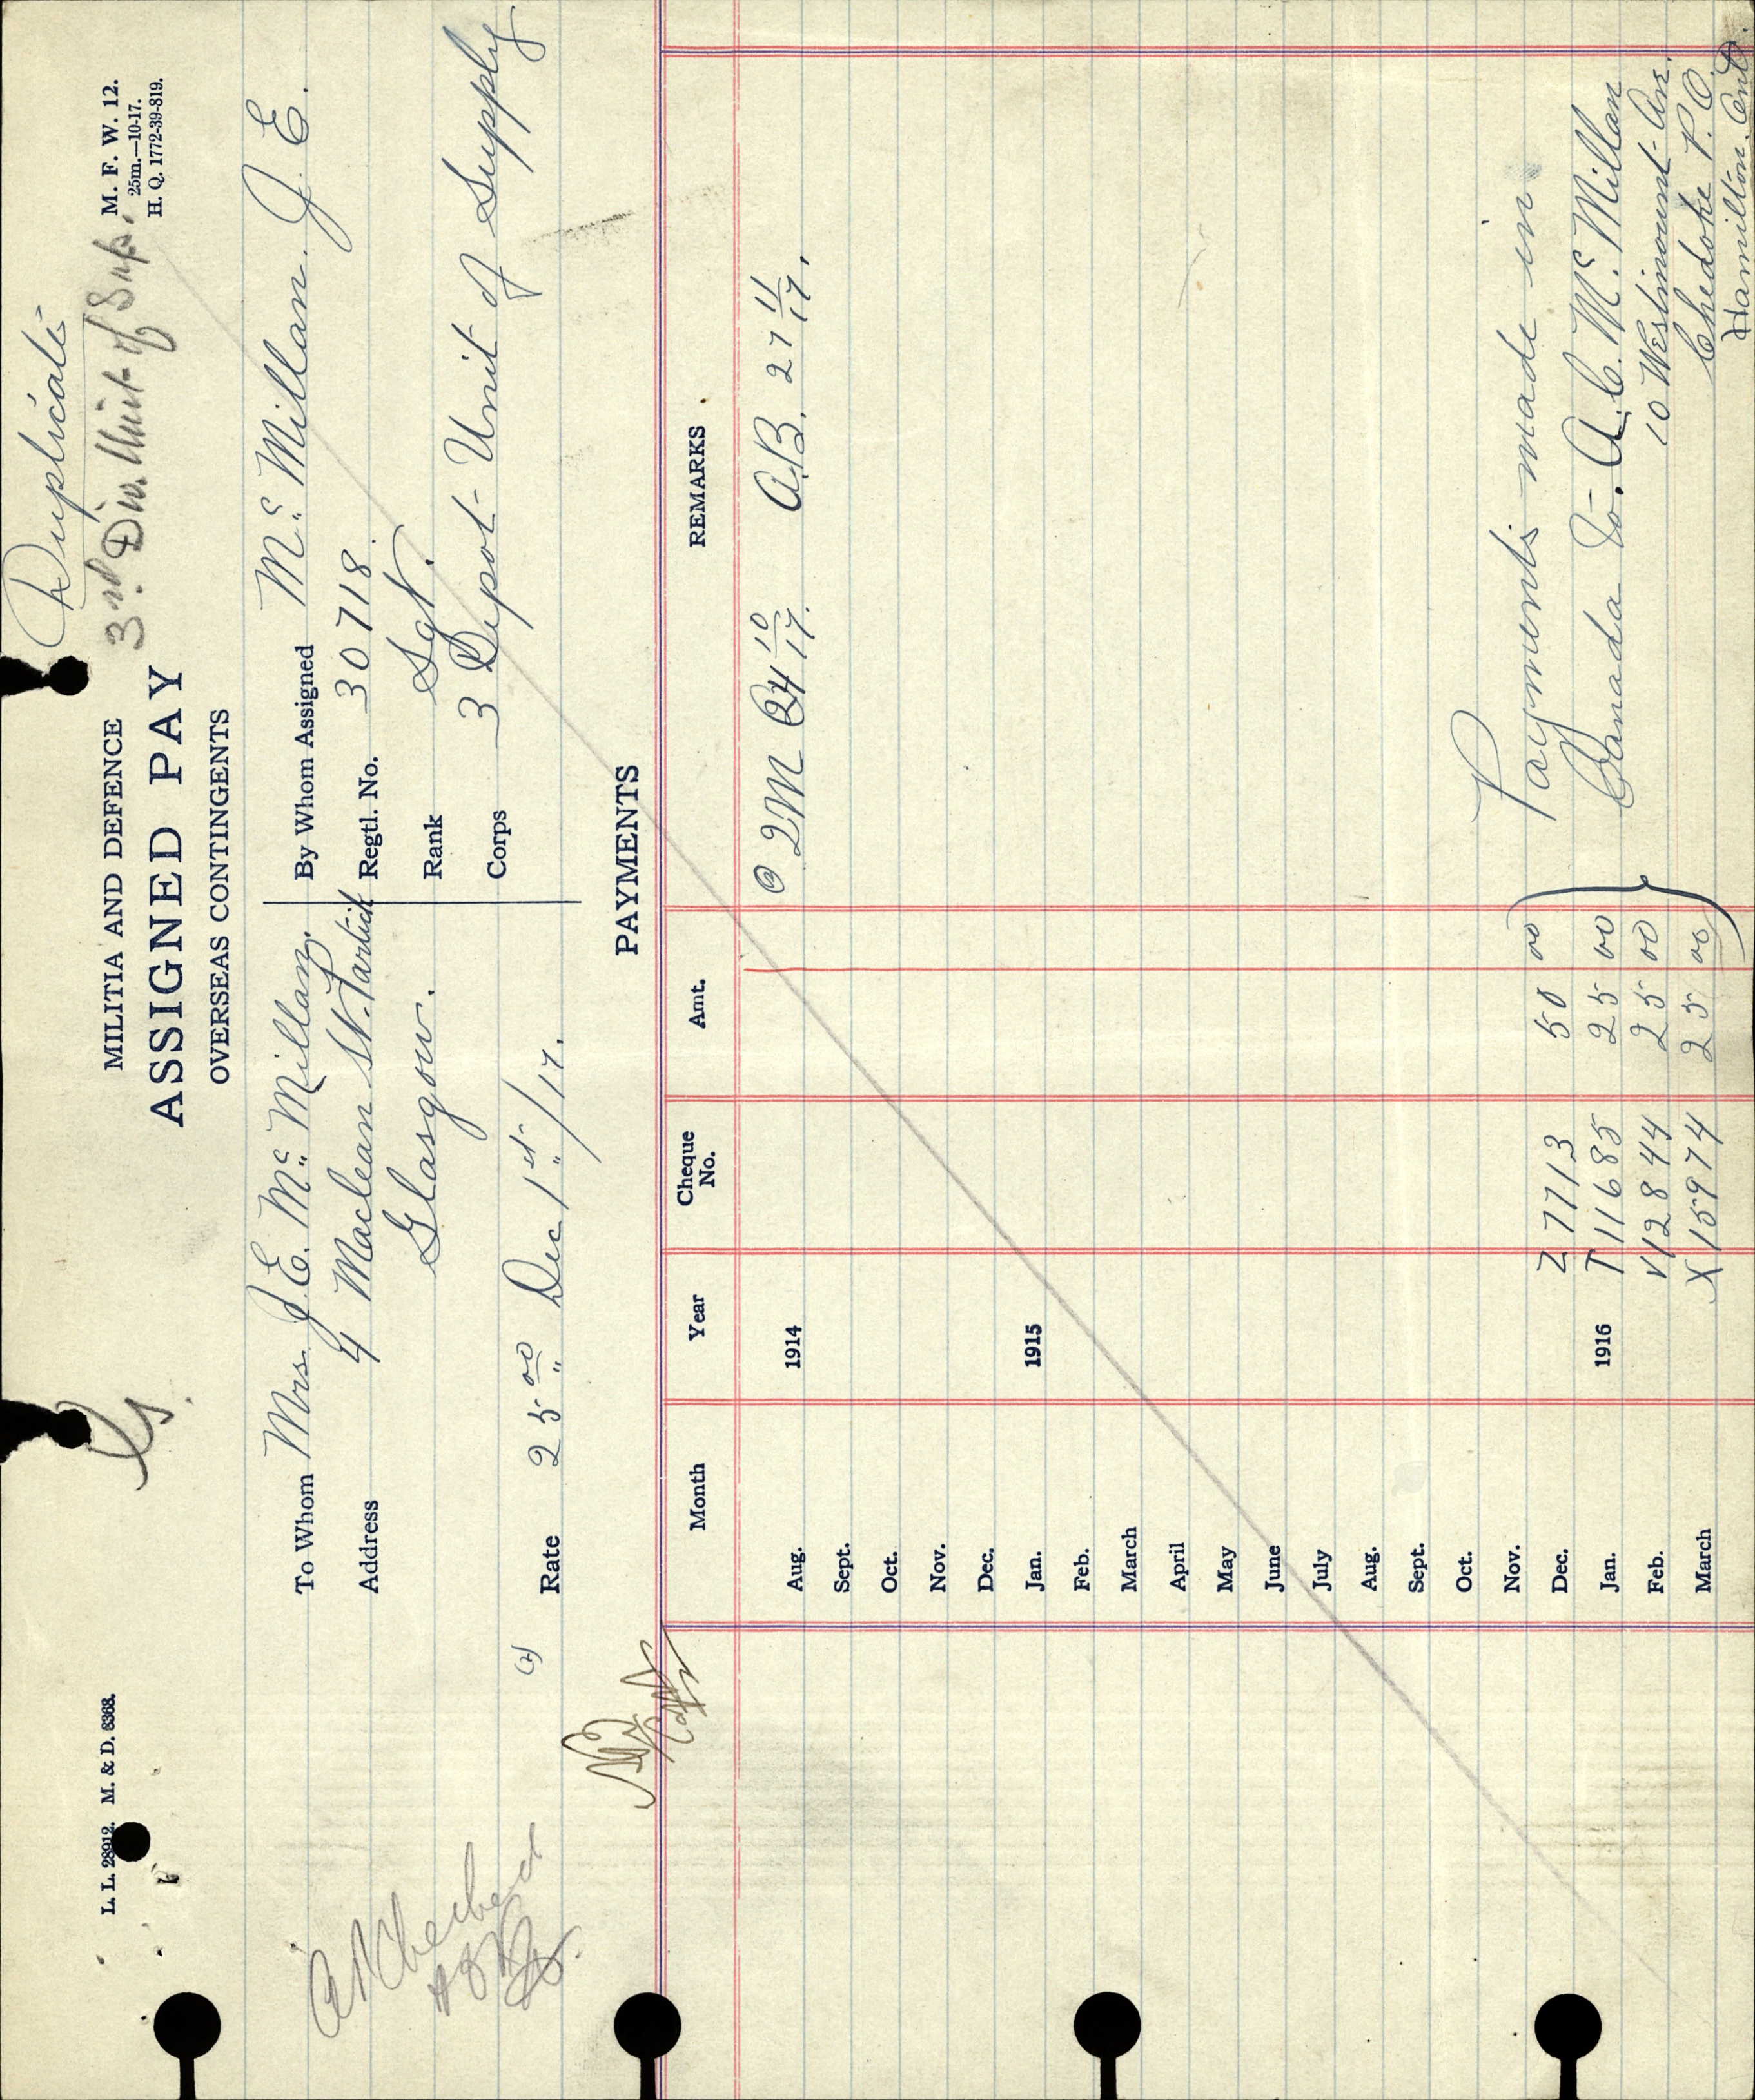 Duplicate
3rd Div. Unit of Sup.
L. L. 23912. M. & D. 6368.
MILITIA AND DEFENCE
M. F. W. 12.
25m.—10-17.
H. Q. 1772-39-819.
ASSIGNED PAY
OVERSEAS CONTINGENTS
To Whom Mrs J. E. Mc Millan.
Address 4 Maclean St. Partick
Glasgow.
Rate 25 00 Dec 1st/17.
By Whom Assigned Mc Millan. J. E.
Regtl. No. 30718.
Rank Sgt.
Corps 3 Depot Unit of Supply
Checked
PAYMENTS
Month Year Cheque No. Amt. REMARKS
Aug. 1914 2M 24 10/17. A.B. 27 11/17.
Sept.
Oct.
Nov.
Dec.
Jan. 1915
Feb.
March
April
May
June
July
Aug.
Sept.
Oct.
Nov.
Dec. Z 7713 50 00
Jan. 1916 T 11685 25 00
Feb. V 12844 25 00
March X 15974 25 00
Payments made in
Canada to. A. C. Mc. Millan
10 Westmount Ave.
Chedoke P. O.
Hamilton. Ont.